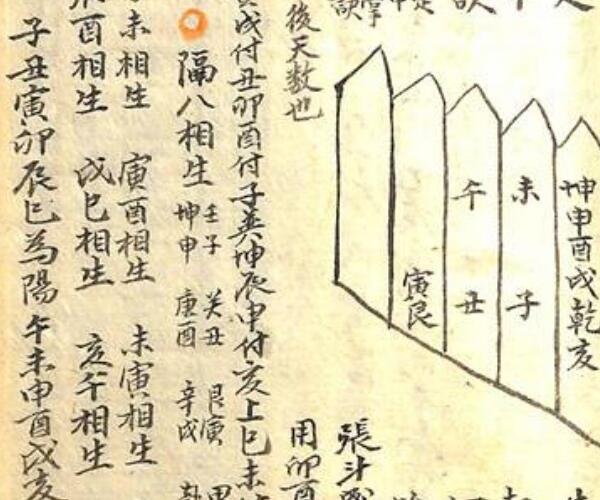 坤申酉戌乾亥
未子
午丑
寅艮
張斗
後天数也
用卯酉
戌付丑卯酉付子巽坤辰申付亥上巳未
隔八相生
壬子 癸丑 艮寅
坤申 庚酉 辛戌
未相生 寅酉相生 未寅相生
酉相生 戌巳相生 亥午相生
子丑寅卯辰巳為陽午未申酉戌亥